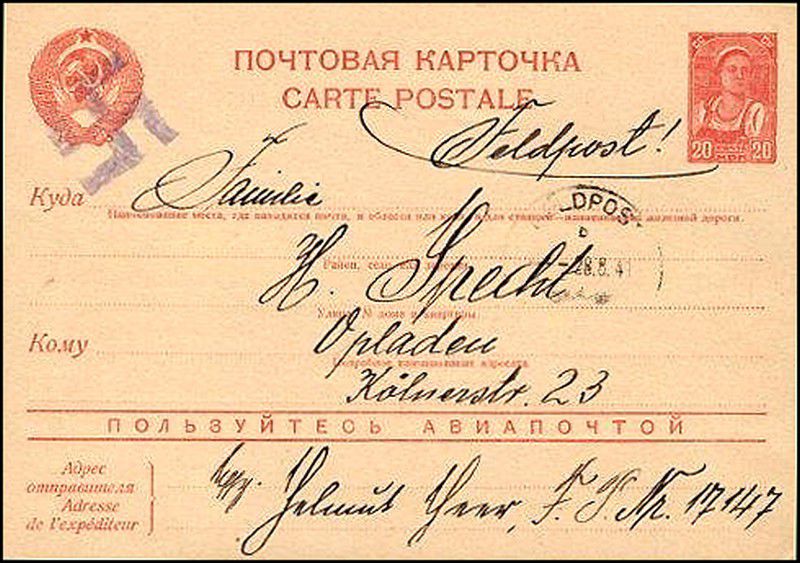 ПОЧТОВАЯ КАРТОЧКА
CARTE POSTALE
20 20
Feldpost!
Куда
Familie
Наименование места, где находится почта, и области или края, а для станций—наименование железной дороги.
FELDPOST
b
28.8.41
H. Specht
Район, село или деревня
Улица, № дома и квартиры
Кому
Opladen
Подробное наименование адресата
Kölnerstr. 23
ПОЛЬЗУЙТЕСЬ АВИАПОЧТОЙ
Адрес
отправителя
Adresse
de l'expéditeur
Helmut Heer, F. P. Nr. 17147